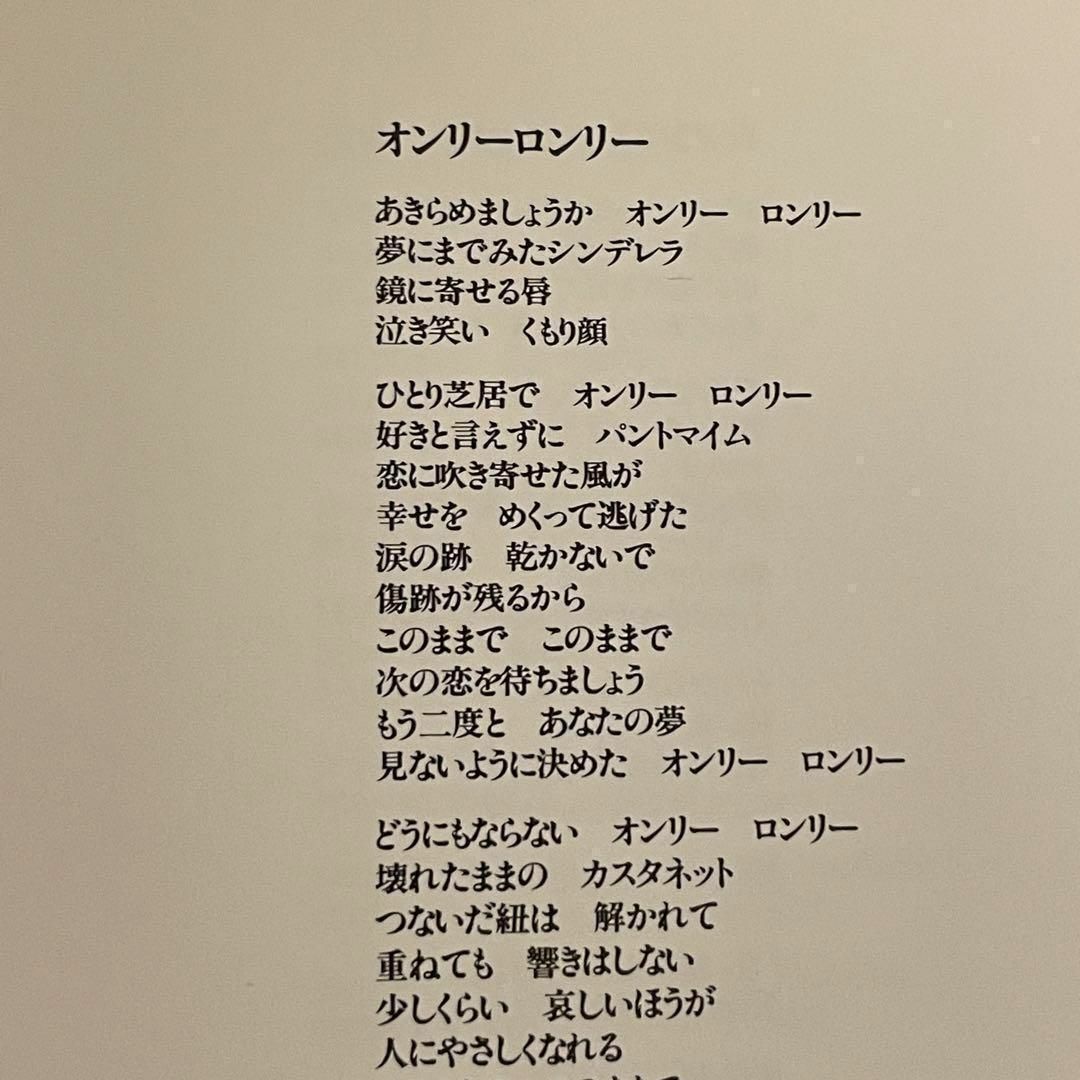 オンリーロンリー
あきらめましょうか　オンリー　ロンリー
夢にまでみたシンデレラ
鏡に寄せる唇
泣き笑い　くもり顔
ひとり芝居で　オンリー　ロンリー
好きと言えずに　パントマイム
恋に吹き寄せた風が
幸せを　めくって逃げた
涙の跡　乾かないで
傷跡が残るから
このままで　このままで
次の恋を待ちましょう
もう二度と　あなたの夢
見ないように決めた　オンリー　ロンリー
どうにもならない　オンリー　ロンリー
壊れたままの　カスタネット
つないだ紐は　解かれて
重ねても　響きはしない
少しくらい　哀しいほうが
人にやさしくなれる